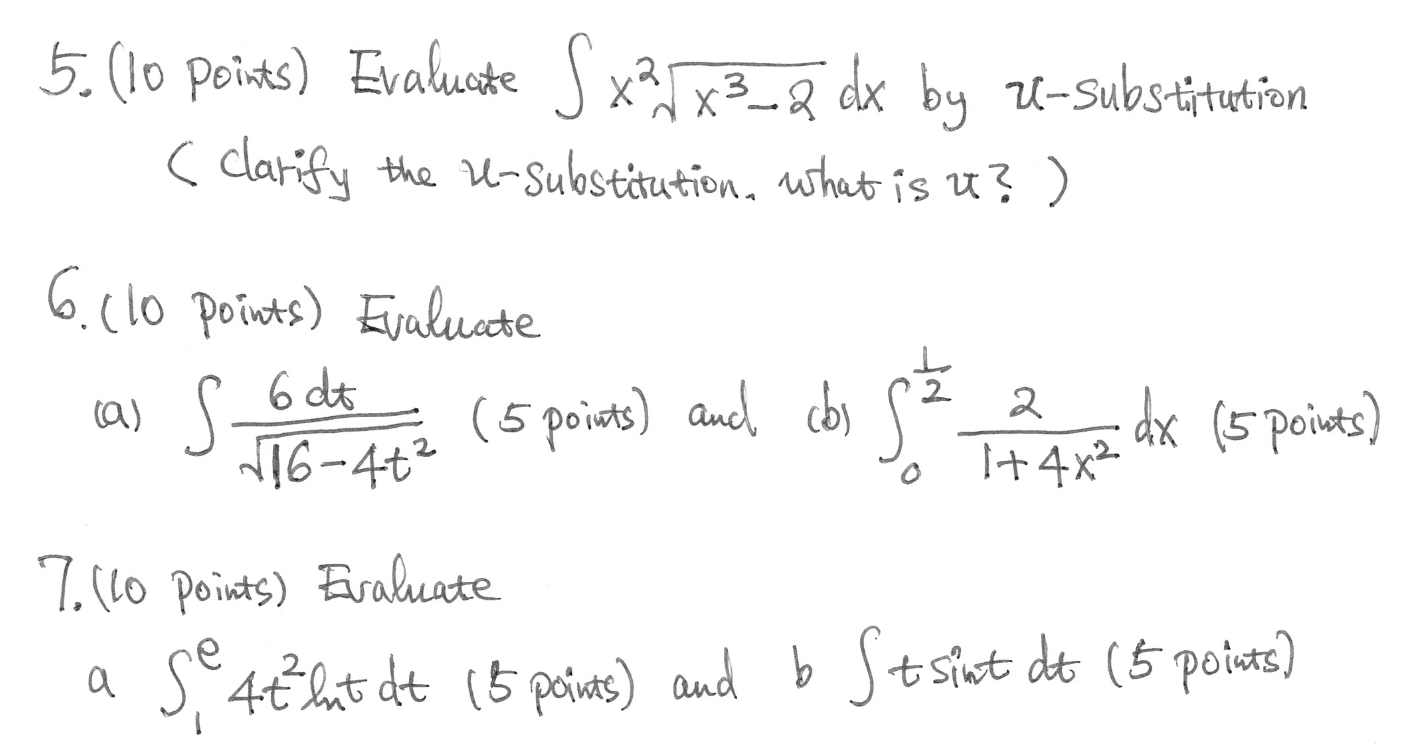 5. (10 points) Evaluate ∫ x²√(x³-2) dx by u-substitution
( clarify the u-substitution. what is u? )
6. (10 points) Evaluate
(a) ∫ 6 dt / √(16-4t²) (5 points) and (b) ∫₀^(1/2) 2 / (1+4x²) dx (5 points)
7. (10 points) Evaluate
a ∫₁^e 4t² ln t dt (5 points) and b ∫ t sint dt (5 points)